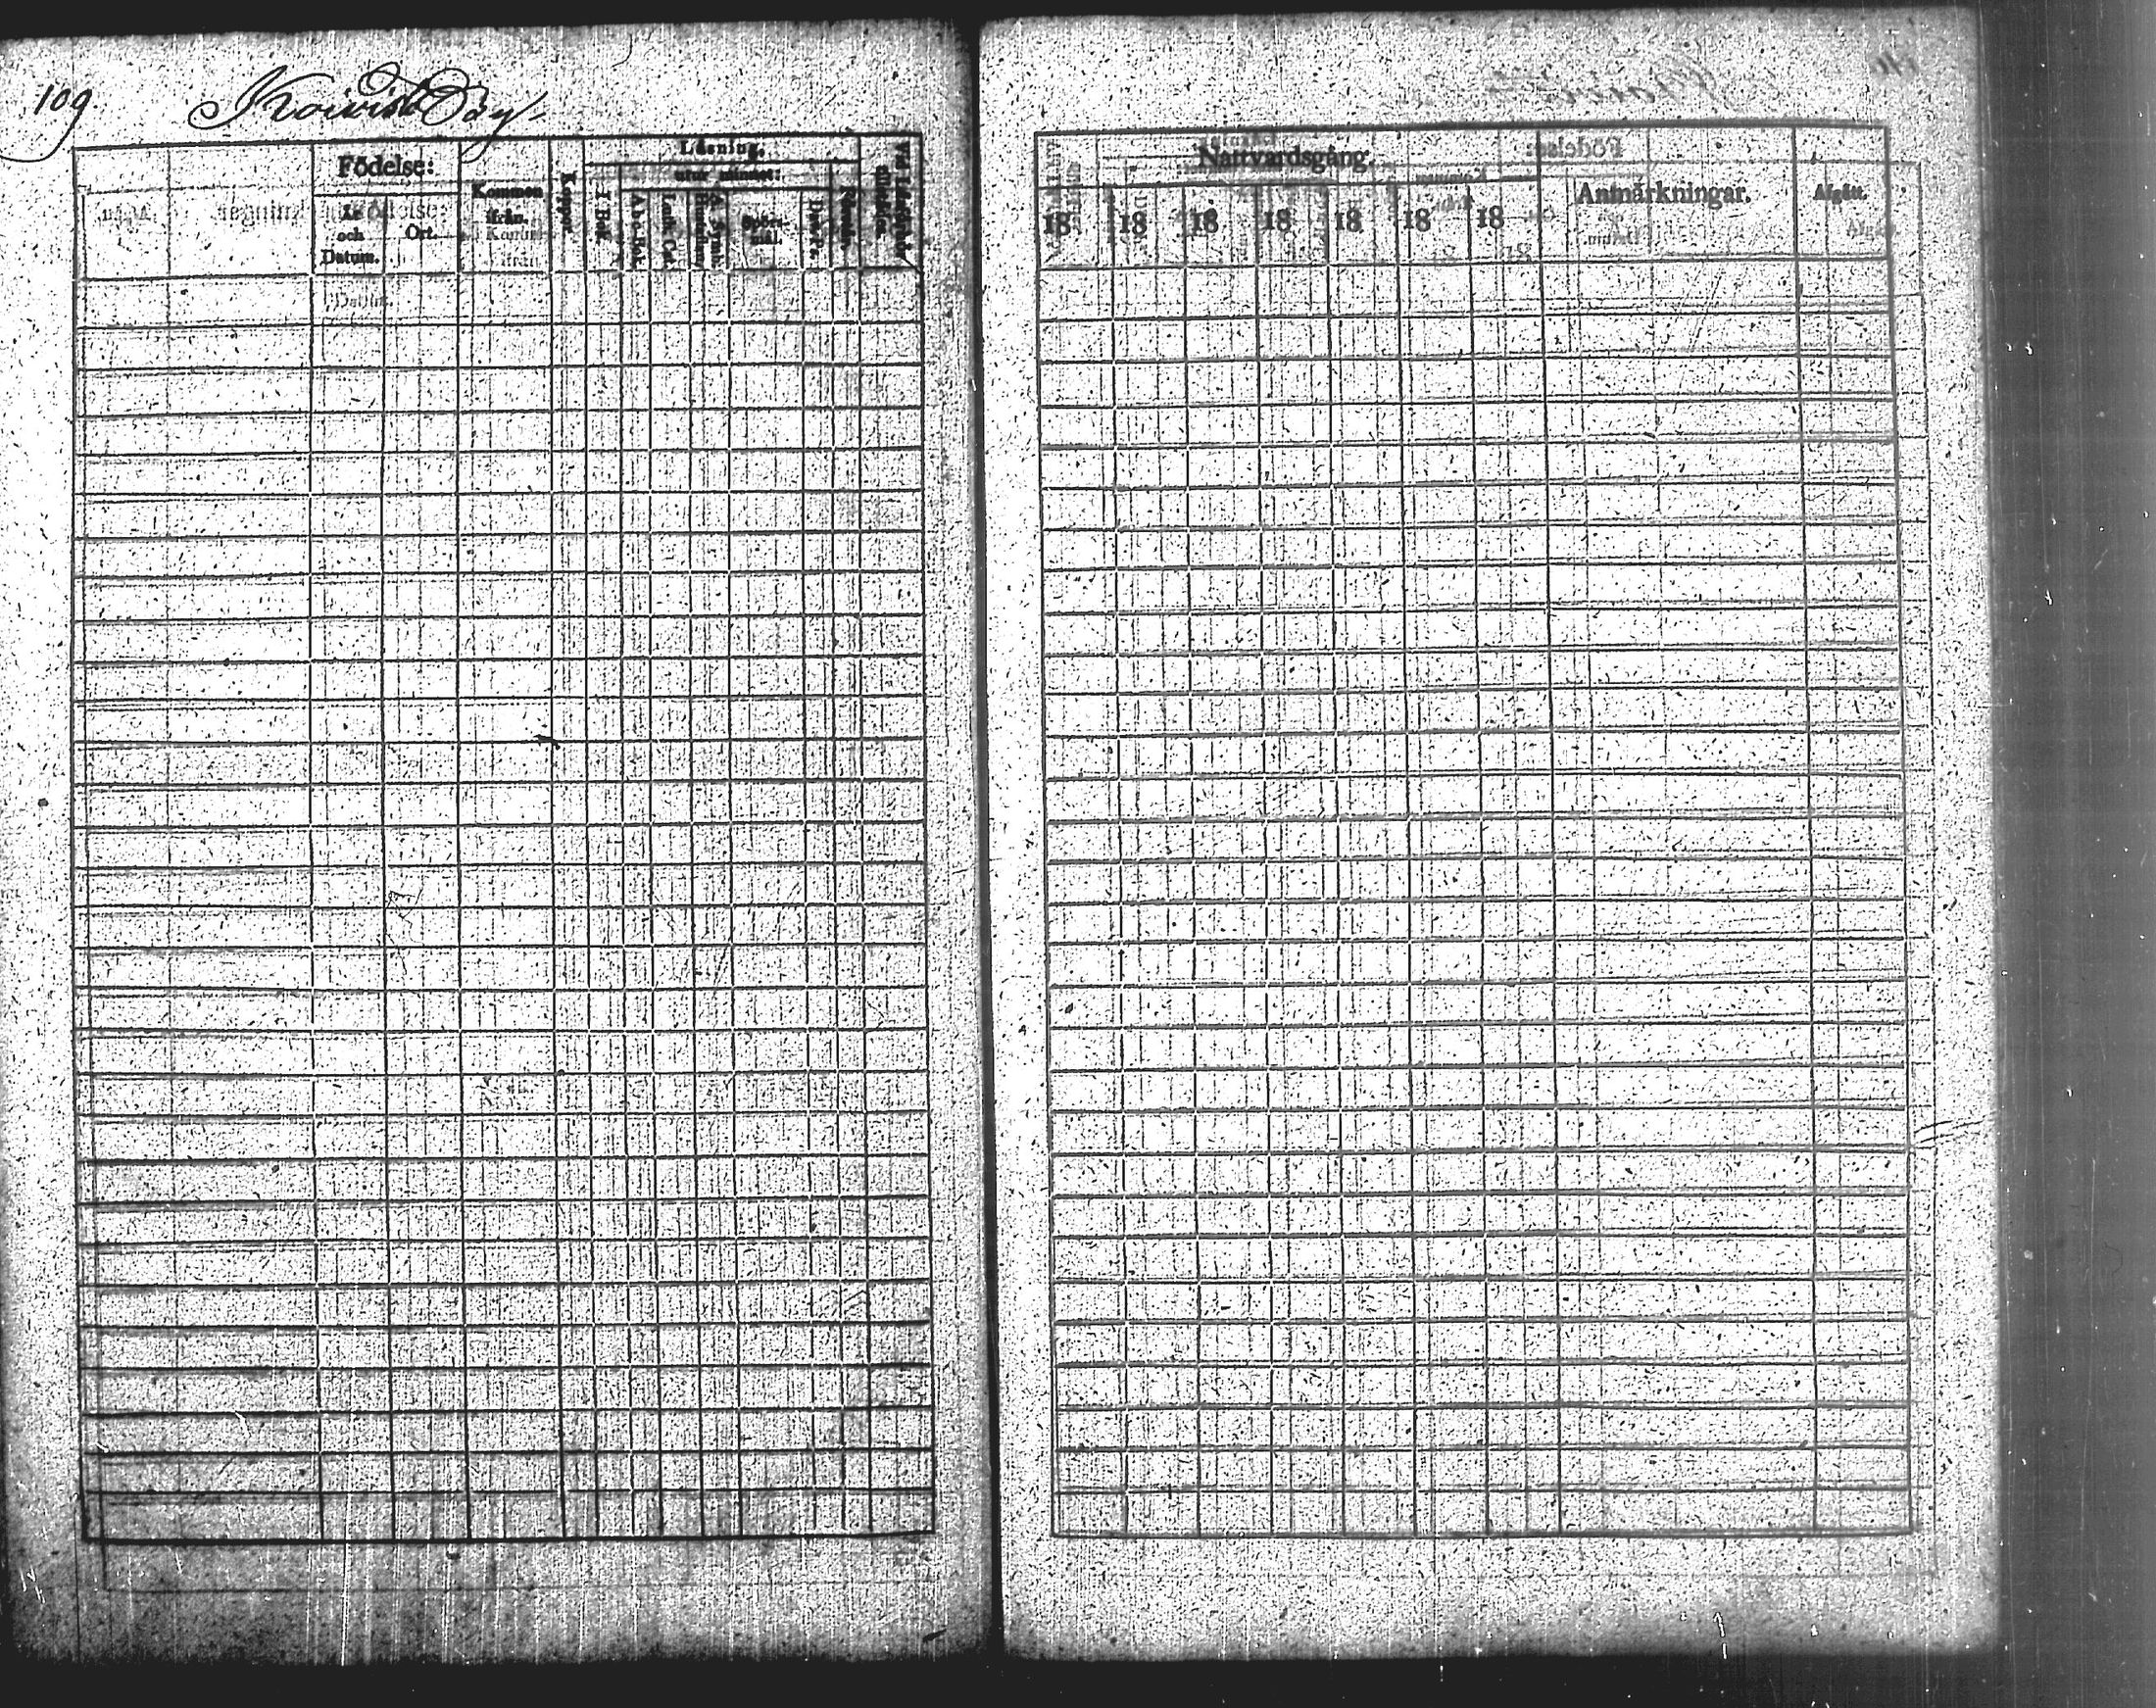 109 Koivisto By
Födelse:
År och Datum.
Ort.
Kommen ifrån.
Koppor.
Läsning.
utur minnet:
I Bok.
A b c Bok.
Luth. Cat.
Hustaflan.
A. Symb.
Spörsmål.
Dav. Ps.
Vid Läsförhör
Nattvardsgång:
18 18 18 18 18 18 18
Anmärkningar.
Afgått.